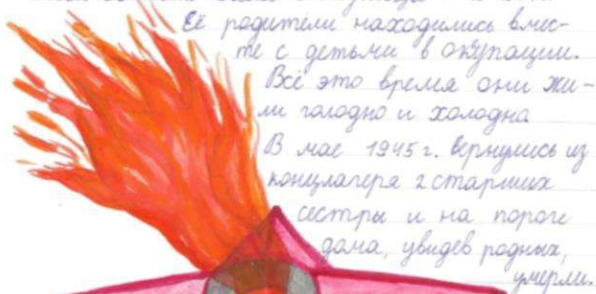 Её родители находились вмес-
те с детьми в окупации.
Всё это время они жи-
ли голодно и холодна
В мае 1945 г. вернулись из
концлагеря 2 старших
сестры и на пороге
дома, увидев родных,
умерли.